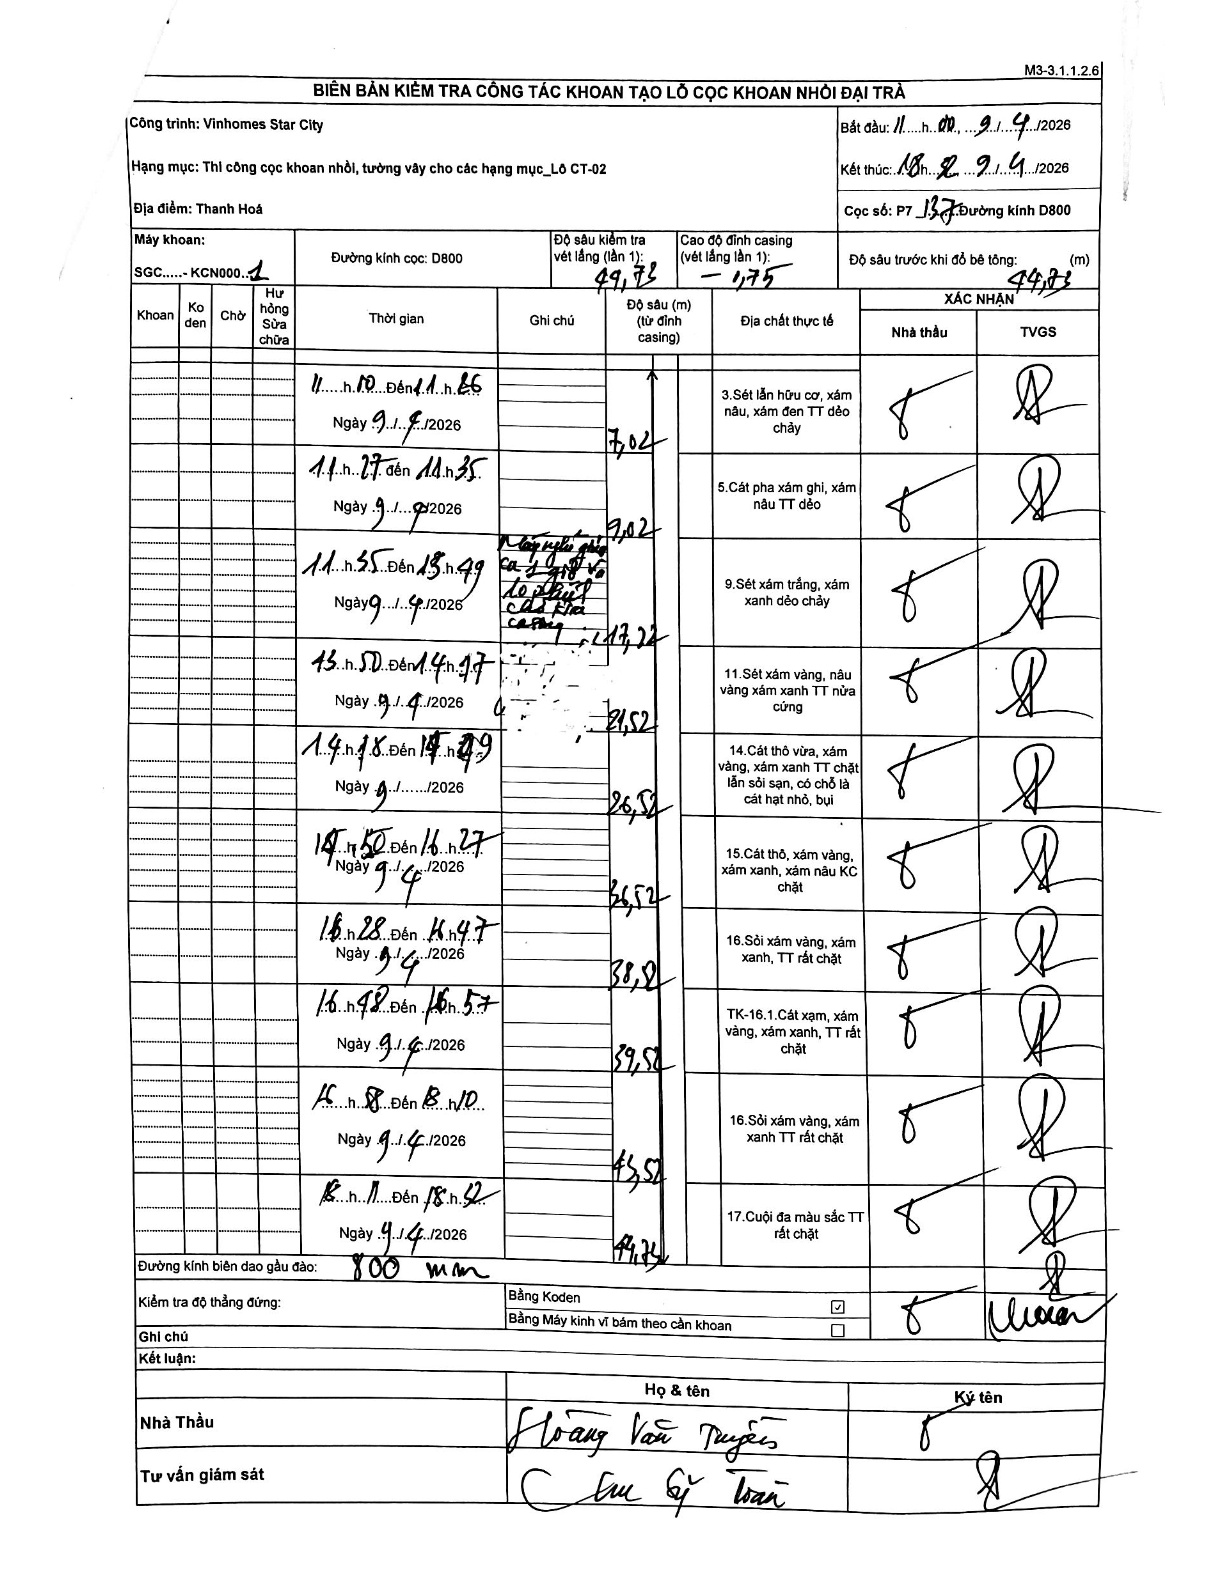 M3-3.1.1.2.6
BIÊN BẢN KIỂM TRA CÔNG TÁC KHOAN TẠO LỖ CỌC KHOAN NHỒI ĐẠI TRÀ
Công trình: Vinhomes Star City
Bắt đầu: 11.....h..00., ...9../...4.../2026
Hạng mục: Thi công cọc khoan nhồi, tường vây cho các hạng mục_Lô CT-02
Kết thúc: 18h.. ...9../...4.../2026
Địa điểm: Thanh Hoá
Cọc số: P7 137 Đường kính D800
Máy khoan:
SGC.....- KCN000..1
Đường kính cọc: D800
Độ sâu kiểm tra vét lắng (lần 1):
49,73
Cao độ đỉnh casing (vét lắng lần 1):
- 1,75
Độ sâu trước khi đổ bê tông: (m)
44,73
Khoan
Ko den
Chờ
Hư hỏng Sửa chữa
Thời gian
Ghi chú
Độ sâu (m) (từ đỉnh casing)
Địa chất thực tế
XÁC NHẬN
Nhà thầu
TVGS
11.....h.10...Đến 11..h.26
Ngày 9../.4../2026
7,02
3.Sét lẫn hữu cơ, xám nâu, xám đen TT dẻo chảy
11..h..27 đến 11.h 35.
Ngày 9../...4/2026
9,02
5.Cát pha xám ghi, xám nâu TT dẻo
11...h.35...Đến 13.h.49
Ngày 9.../..4./2026
casing
17,22
9.Sét xám trắng, xám xanh dẻo chảy
13..h.50..Đến 14.h.17
Ngày .9../..4../2026
21,52
11.Sét xám vàng, nâu vàng xám xanh TT nửa cứng
14..h.18..Đến h
Ngày 9../....../2026
26,52
14.Cát thô vừa, xám vàng, xám xanh TT chặt lẫn sỏi sạn, có chỗ là cát hạt nhỏ, bụi
h 50..Đến 16.h..27
Ngày 9../.4../2026
36,52
15.Cát thô, xám vàng, xám xanh, xám nâu KC chặt
16..h 28...Đến .16.h 47
Ngày .9../.4../2026
38,52
16.Sỏi xám vàng, xám xanh, TT rất chặt
16..h.48..Đến 16.h.57
Ngày .9../..4../2026
39,52
TK-16.1.Cát xạm, xám vàng, xám xanh, TT rất chặt
16.....h..58...Đến 18..h.10..
Ngày .9../.4../2026
43,52
16.Sỏi xám vàng, xám xanh TT rất chặt
18...h..11....Đến .18.h.52
Ngày .9../.4../2026
44,73
17.Cuội đa màu sắc TT rất chặt
Đường kính biên dao gầu đào: 800 mm
Kiểm tra độ thẳng đứng:
Bằng Koden
Bằng Máy kinh vĩ bám theo cần khoan
Ghi chú
Kết luận:
Họ & tên
Ký tên
Nhà Thầu
Hoàng Văn Truyền
Tư vấn giám sát
Sỹ Toàn